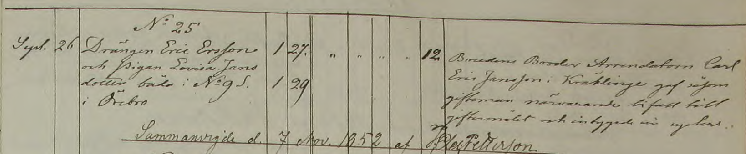 No 25
Sept. 26 Drängen Eric Ersson 1 27. " " " " 12. Brudens Broder Arrendatorn Carl
och Pigan Lovisa Jans Eric Jansson i Kräklinge gaf såsom
dotter båda i No 9 S. 1 29 giftoman närvarande bifall till
i Örebro giftermålet och intygade
Sammanvigde d. 7 Nov. 1852 af Petterson.